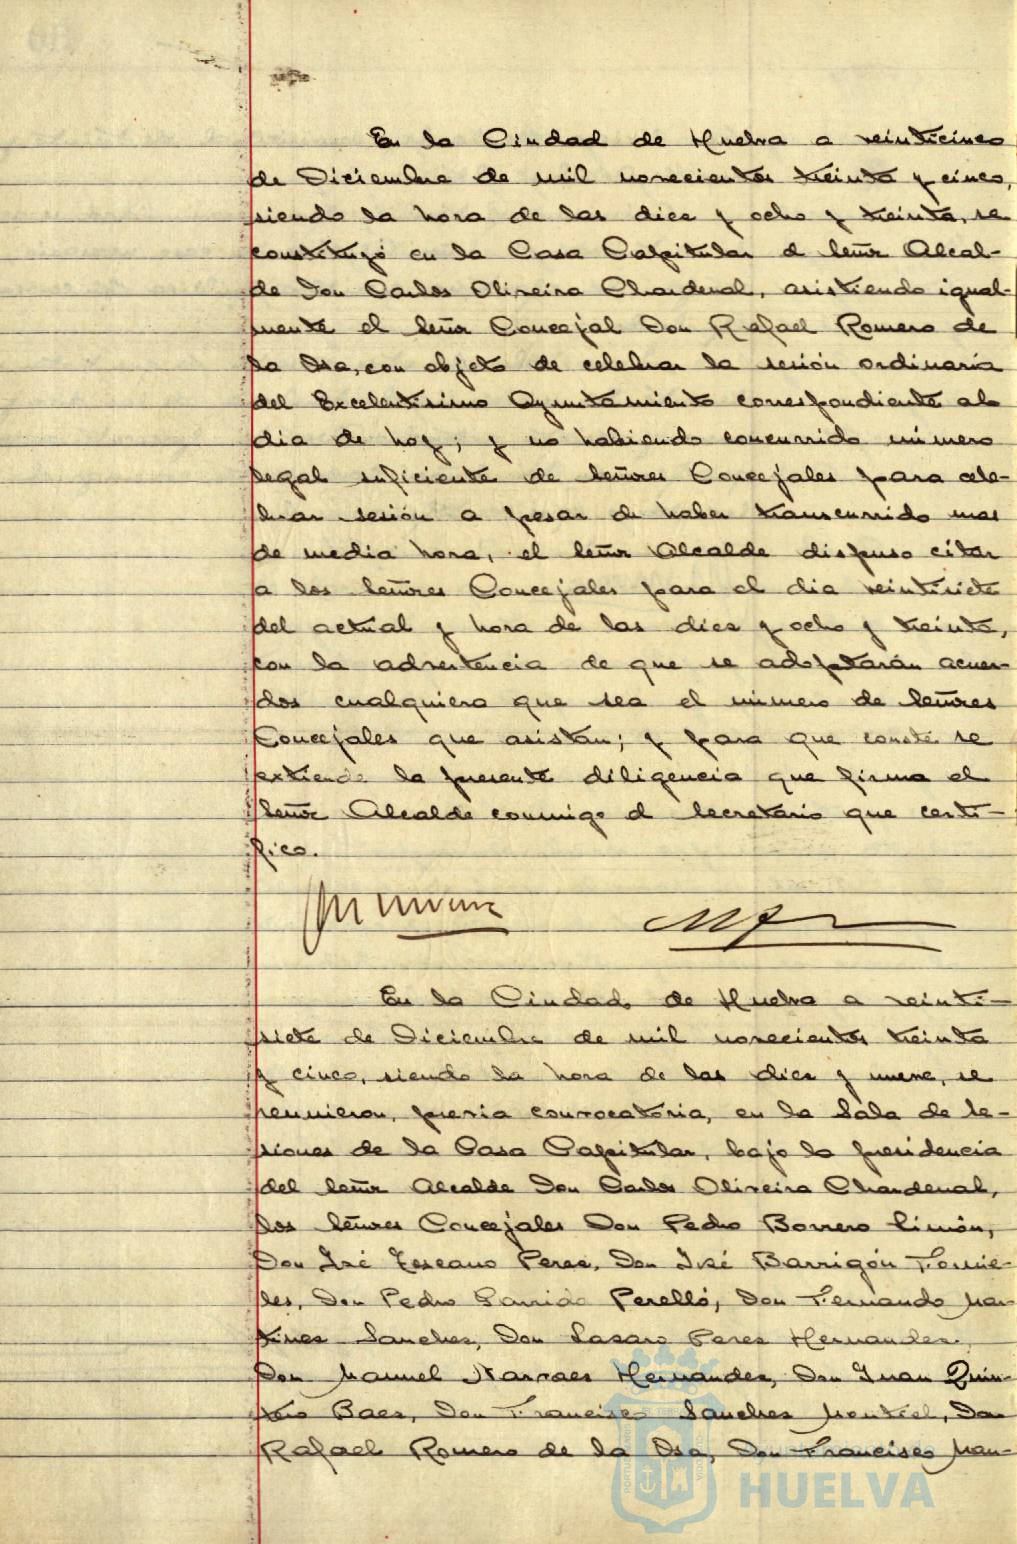 En la Ciudad de Huelva a veinticinco
de Diciembre de mil novecientos treinta y cinco,
siendo la hora de las diez y ocho y treinta, se
constituyó en la Casa Capitular el Señor Alcal-
de Don Carlos Oliveira Chardenal, asistiendo igual-
mente el Señor Concejal Don Rafael Romero de
la Osa, con objeto de celebrar la sesión ordinaria
del Excelentísimo Ayuntamiento correspondiente al
dia de hoy; y no habiendo concurrido número
legal suficiente de Señores Concejales para cele-
brar sesión a pesar de haber transcurrido mas
de media hora, el Señor Alcalde dispuso citar
a los Señores Concejales para el dia veintisiete
del actual y hora de las diez y ocho y treinta,
con la advertencia de que se adoptarán acuer-
dos cualquiera que sea el número de Señores
Concejales que asistan; y para que conste se
extiende la presente diligencia que firma el
Señor Alcalde conmigo el Secretario que certi-
fico.
En la Ciudad de Huelva a veinti-
siete de Diciembre de mil novecientos treinta
y cinco, siendo la hora de las diez y nueve, se
reunieron, previa convocatoria, en la Sala de Se-
siones de la Casa Capitular, bajo la presidencia
del Señor Alcalde Don Carlos Oliveira Chardenal,
los Señores Concejales Don Pedro Borrero Limón,
Don José Lescano Perez, Don José Barrigón Fornie-
les, Don Pedro Garrido Perelló, Don Fernando Mar-
tinez Sanchez, Don Lazaro Perez Hernandez,
Don Manuel Narvaez Hernandez, Don Juan Quin-
tero Baez, Don Francisco Sanchez Montiel, Don
Rafael Romero de la Osa, Don Francisco Man-
HUELVA